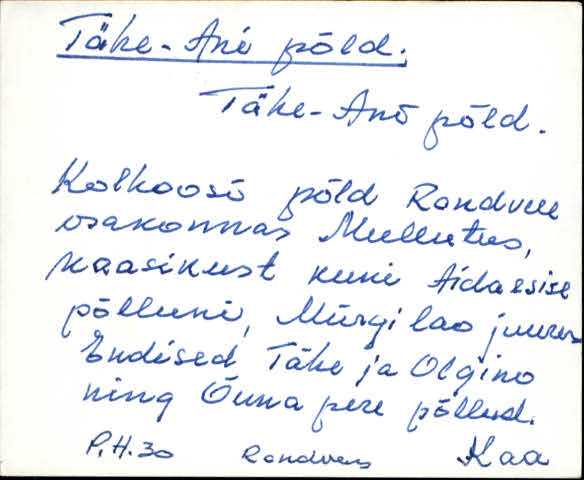 Täke-Ani põld.
Täke-Anõ põld.
Kolkoosõ põld Randvere
osakonnas Mullutus,
Kaasikust kuni Aidaesise
põlluni, Mürgi lao juures
Endised Täke ja Olgino
ning Õuna pere põllud.
P.H.30 Randvere Kaa